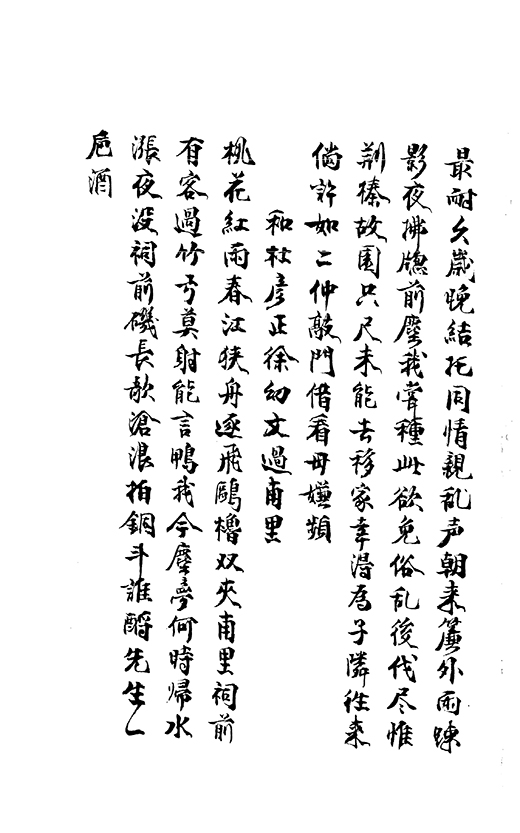 最耐久歳晚結托同情親乱声朝来簾外雨踈
影夜拂牕前塵我甞種此欲免俗乱後伐尽惟
荆榛故園只尺未能去移家幸得爲子隣往来
倘許如二仲敲門借看毋嫌頻
和杜彦正徐幼文過甫里
桃花紅雨春江狹舟逐飛鷗櫓双夾甫里祠前
有客過竹弓莫射能言鴨我今塵夢何時帰水
漲夜没祠前磯長歌滄浪拍銅斗誰酹先生一
巵酒